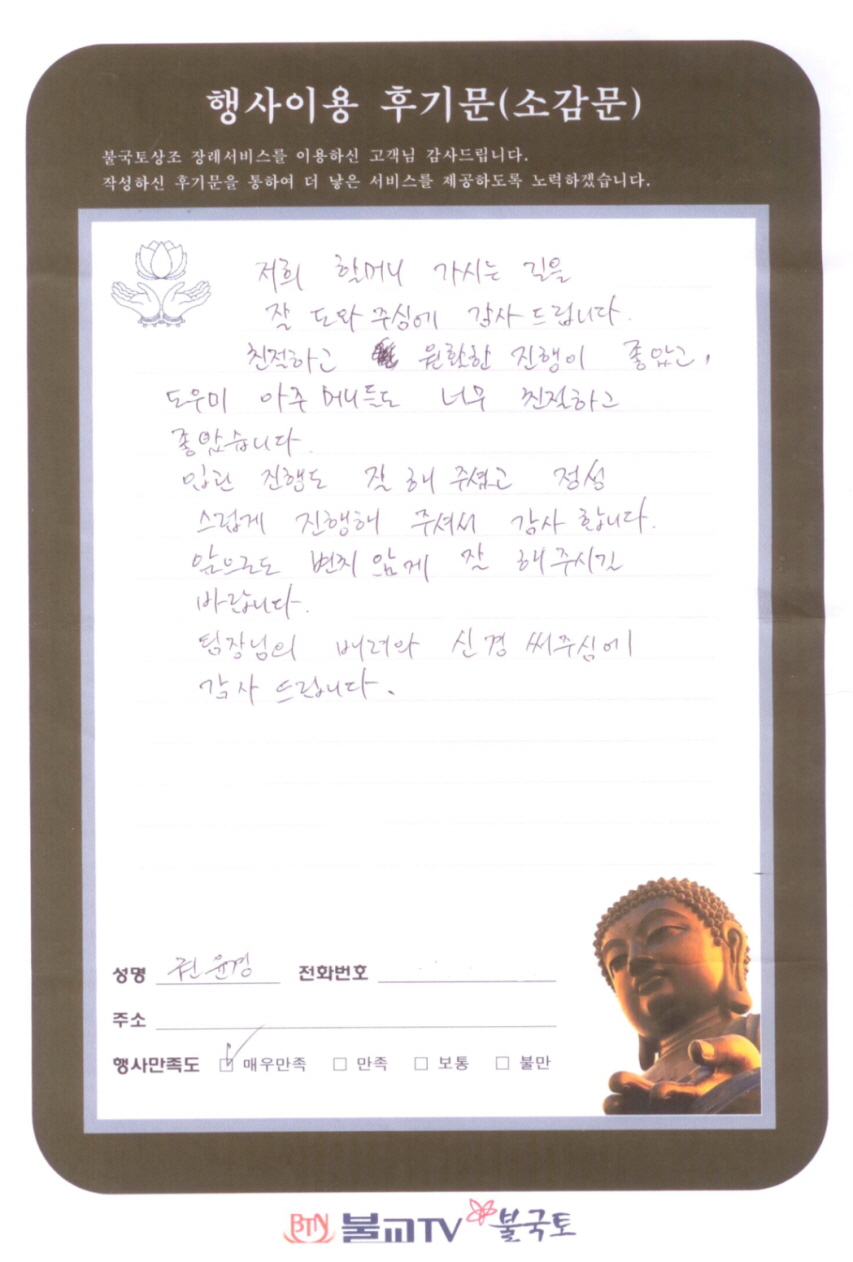 행사이용 후기문(소감문)
불국토상조 장례서비스를 이용하신 고객님 감사드립니다.
작성하신 후기문을 통하여 더 낳은 서비스를 제공하도록 노력하겠습니다.
저희 할머니 가시는 길을
잘 도와 주심에 감사 드립니다.
친절하고 원활한 진행이 좋았고,
도우미 아주머니들도 너무 친절하고
좋았습니다.
입관 진행도 잘 해 주셨고 정성
스럽게 진행해 주셔서 감사 합니다.
앞으로도 변치 않게 잘 해주시길
바랍니다.
팀장님의 배려와 신경 써주심에
감사 드립니다.
성명 권윤경 전화번호
주소
행사만족도 매우만족 만족 보통 불만
BTN 불교TV 불국토